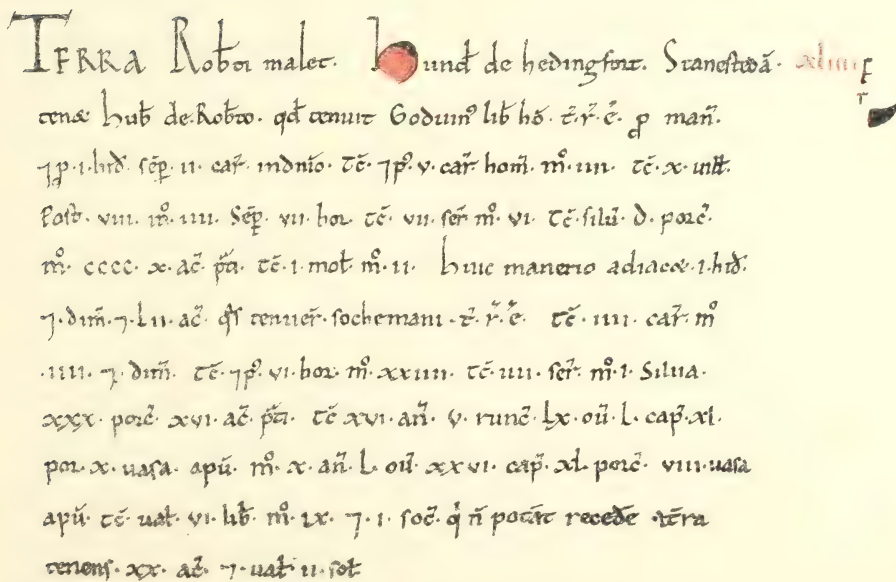 TERRA Roƀti malet. hunđ de hedingfort. Stanestedā. xliiii
tenæ huƀ de Roƀto. qđ tenuit Goduin⁹ liƀ hō. t̄. r̄. ē. ꝓ man̄.
⁊ ꝓ. i. hiđ. sēp. ii. car̄. indnīo. tc̄. ⁊ p⁹. v. car̄. hom̄. m̊. iiii. tc̄. x. uilł.
Post. viii. m̊. iiii. Sēp. vii. bor. tc̄. vii. ser̄. m̊. vi. tc̄. silū. d. porc̄.
m̊. cccc. x. ac̄. p̄ti. tc̄. i. moł. m̊. ii. huic manerio adiacæ. i. hiđ.
⁊. dim̄. ⁊. lii. ac̄. q̄s tenuer̄. sochemani. t̄. r̄. ē. tc̄. iiii. car̄. m̊
. iiii. ⁊. dim̄. tc̄. ⁊ p⁹. vi. bor. m̊. xxiiii. tc̄. iiii. ser̄. m̊. i. Silua.
xxx. porc̄. xvi. ac̄. p̄ti. tc̄. xvi. an̄. v. runc̄. lx. oū. l. cap̄. xl.
por. x. uasa. apū. m̊. x. an̄. l. oū. xxvi. cap̄. xl. porc̄. viii. uasa
apū. tc̄. uał. vi. liƀ. m̊. ix. ⁊. i. soc̄. q̇ n̄ potāt recedē t̄ra
tenens. xx. ac̄. ⁊. uał. ii. soł